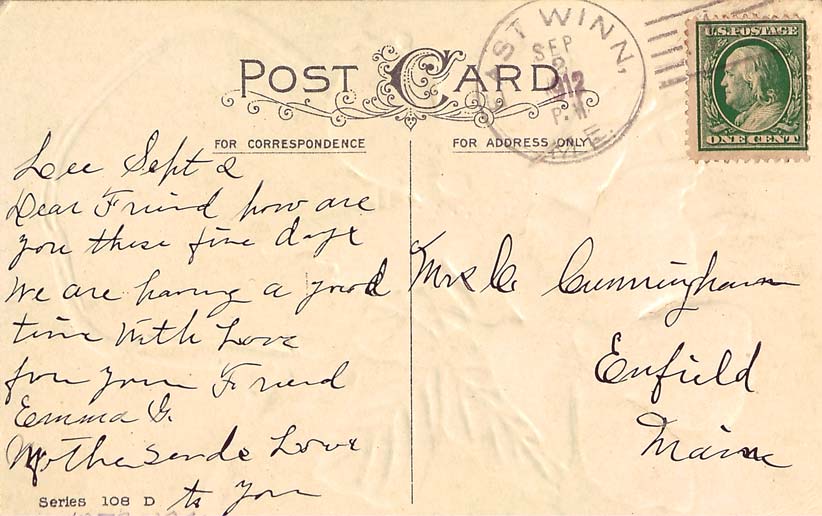 POST CARD
EAST WINN,
SEP
2
1912
P.M.
ME.
U.S. POSTAGE
ONE CENT
FOR CORRESPONDENCE
FOR ADDRESS ONLY
Lee Sept 2
Dear Friend how are
you these fine days
We are having a good
time With Love
from your Friend
Emma G.
Mother sends Love
to you
Mrs C. Cunningham
Enfield
Maine
Series 108 D